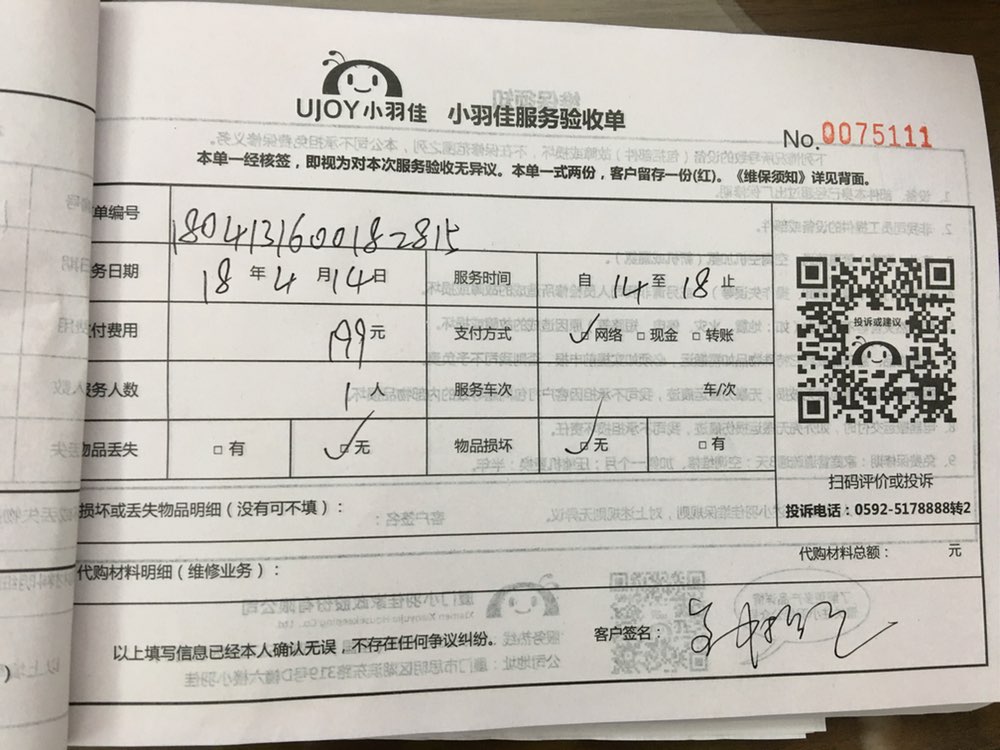 UJOY小羽佳 小羽佳服务验收单
No.0075111
本单一经核签，即视为对本次服务验收无异议。本单一式两份，客户留存一份(红)。《维保须知》详见背面。
单编号 1804131600182815
务日期 18年4月14日 服务时间 自14至18止
付费用 199元 支付方式 ☑网络 □现金 □转账
服务人数 1人 服务车次 车/次
物品丢失 □有 ☑无 物品损坏 ☑无 □有
投诉或建议
扫码评价或投诉
投诉电话：0592-5178888转2
损坏或丢失物品明细（没有可不填）：
代购材料总额： 元
代购材料明细（维修业务）：
以上填写信息已经本人确认无误，不存在任何争议纠纷。
客户签名：